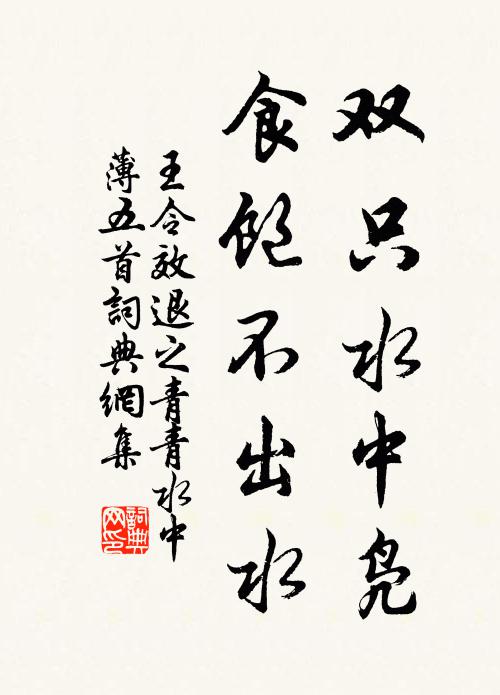 双只水中凫
食饱不出水
王令效退之青青水中
薄五首詞典網集
詞典
网印